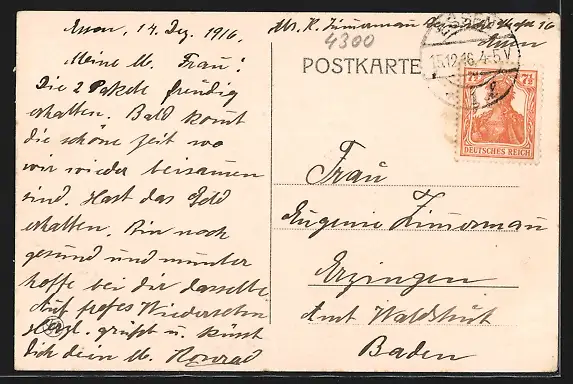 Essen, 14 Dez. 1916,
Meine lb. Frau!
Die 2 Pakete freudig
erhalten. Bald komt
die schöne Zeit wo
wir wieder beisamen
sind. Hast das Geld
erhalten. Bin noch
gesund und munter
hoffe bei dir dasselbe
Auf frohes Wiedersehn
Herzl. grüßt u. küsst
Dich dein lb. Konrad
Abs. K. Zimmermann
16
Essen
4300
15.12.16. 4-5 V.
POSTKARTE
7½ 7½
DEUTSCHES REICH
Frau
Eugenie Zimmermann
Erzingen
Amt Waldshut
Baden